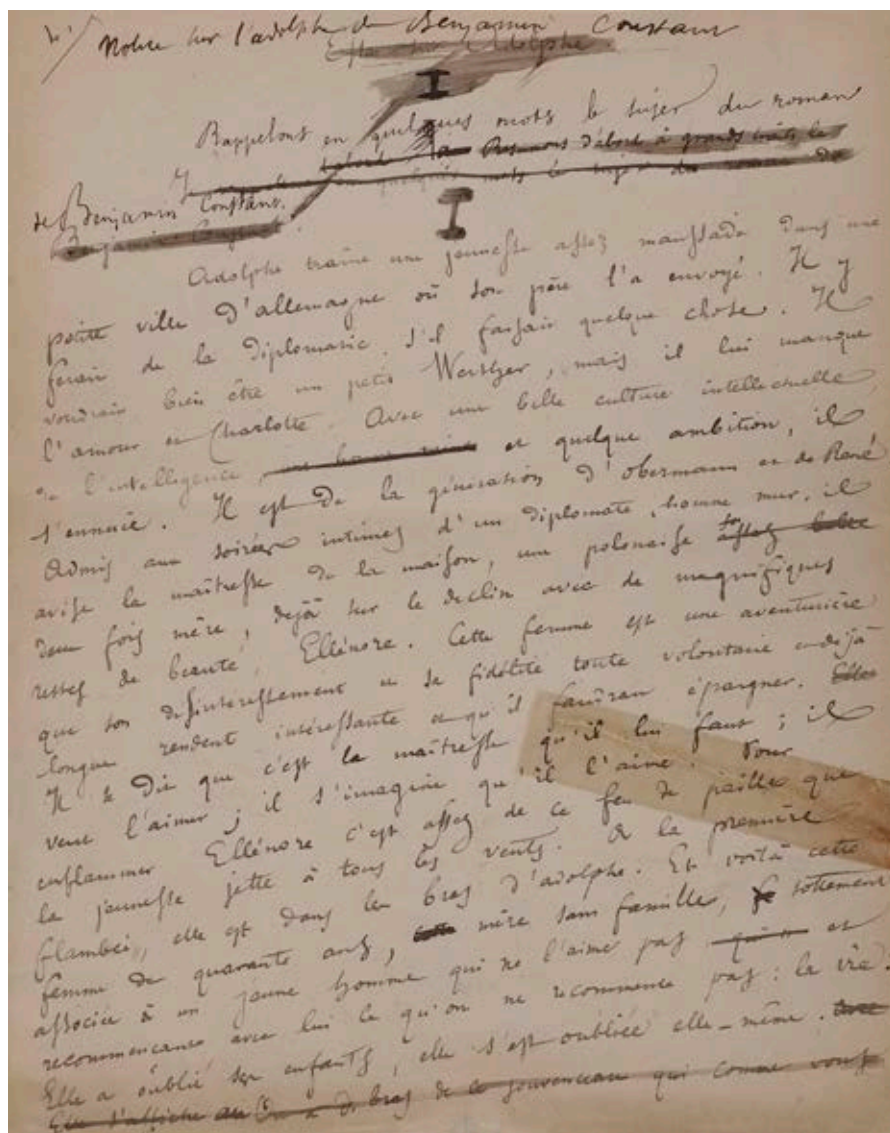 Notice sur l'adolphe de Benjamin Constant
Adolphe.
I
Rappelons en quelques mots le sujet du roman
Resumons d'abord à grands traits le
quelques mots le sujet du roman de
de Benjamin Constant.
Benjamin Constant.
I
Adolphe traîne une jeunesse assez maussade dans une
petite ville d'allemagne où son père l'a envoyé. Il y
ferait de la diplomatie, s'il faisait quelque chose. Il
voudrait bien être un petit Werther, mais il lui manque
l'amour et Charlotte. Avec une belle culture intellectuelle,
de l'intelligence, et quelque ambition, il
s'ennuie. Il est de la génération d'Obermann et de René
Admis aux soirées intimes d'un diplomate, homme mur, il
avise la maîtresse de la maison, une polonaise assez belle
deux fois mère, dejà sur le declin avec de magnifiques
restes de beauté, Ellénore. Cette femme est une aventurière
que son desinteressement et sa fidélité toute volontaire et dejà
longue rendent intéressante et qu'il faudrait épargner. Elle
Il se dit que c'est la maîtresse qu'il lui faut ; il
veut l'aimer ; il s'imagine qu'il l'aime. Pour
enflammer Ellénore c'est assez de ce feu de paille que
la jeunesse jette à tous les vents. A la première
flambée, elle est dans les bras d'adolphe. Et voilà cette
femme de quarante ans, mère sans famille, sottement
associée à un jeune homme qui ne l'aime pas et
recommencant avec lui ce qu'on ne recommence pas : la vie.
Elle a oublié ses enfants, elle s'est oubliée elle-même. Avec
Elle s'affiche au bras de ce jouvenceau qui comme